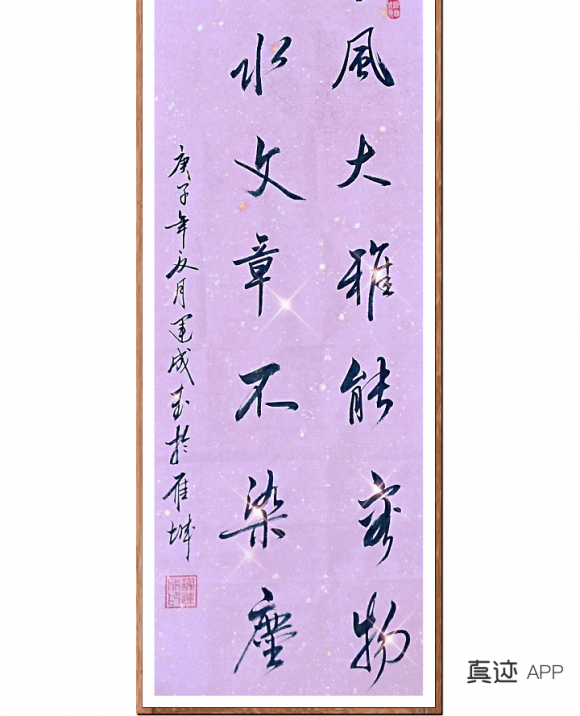 風大雅能容物
水文章不染塵
庚子年夏月運成書於雁城
真迹 APP